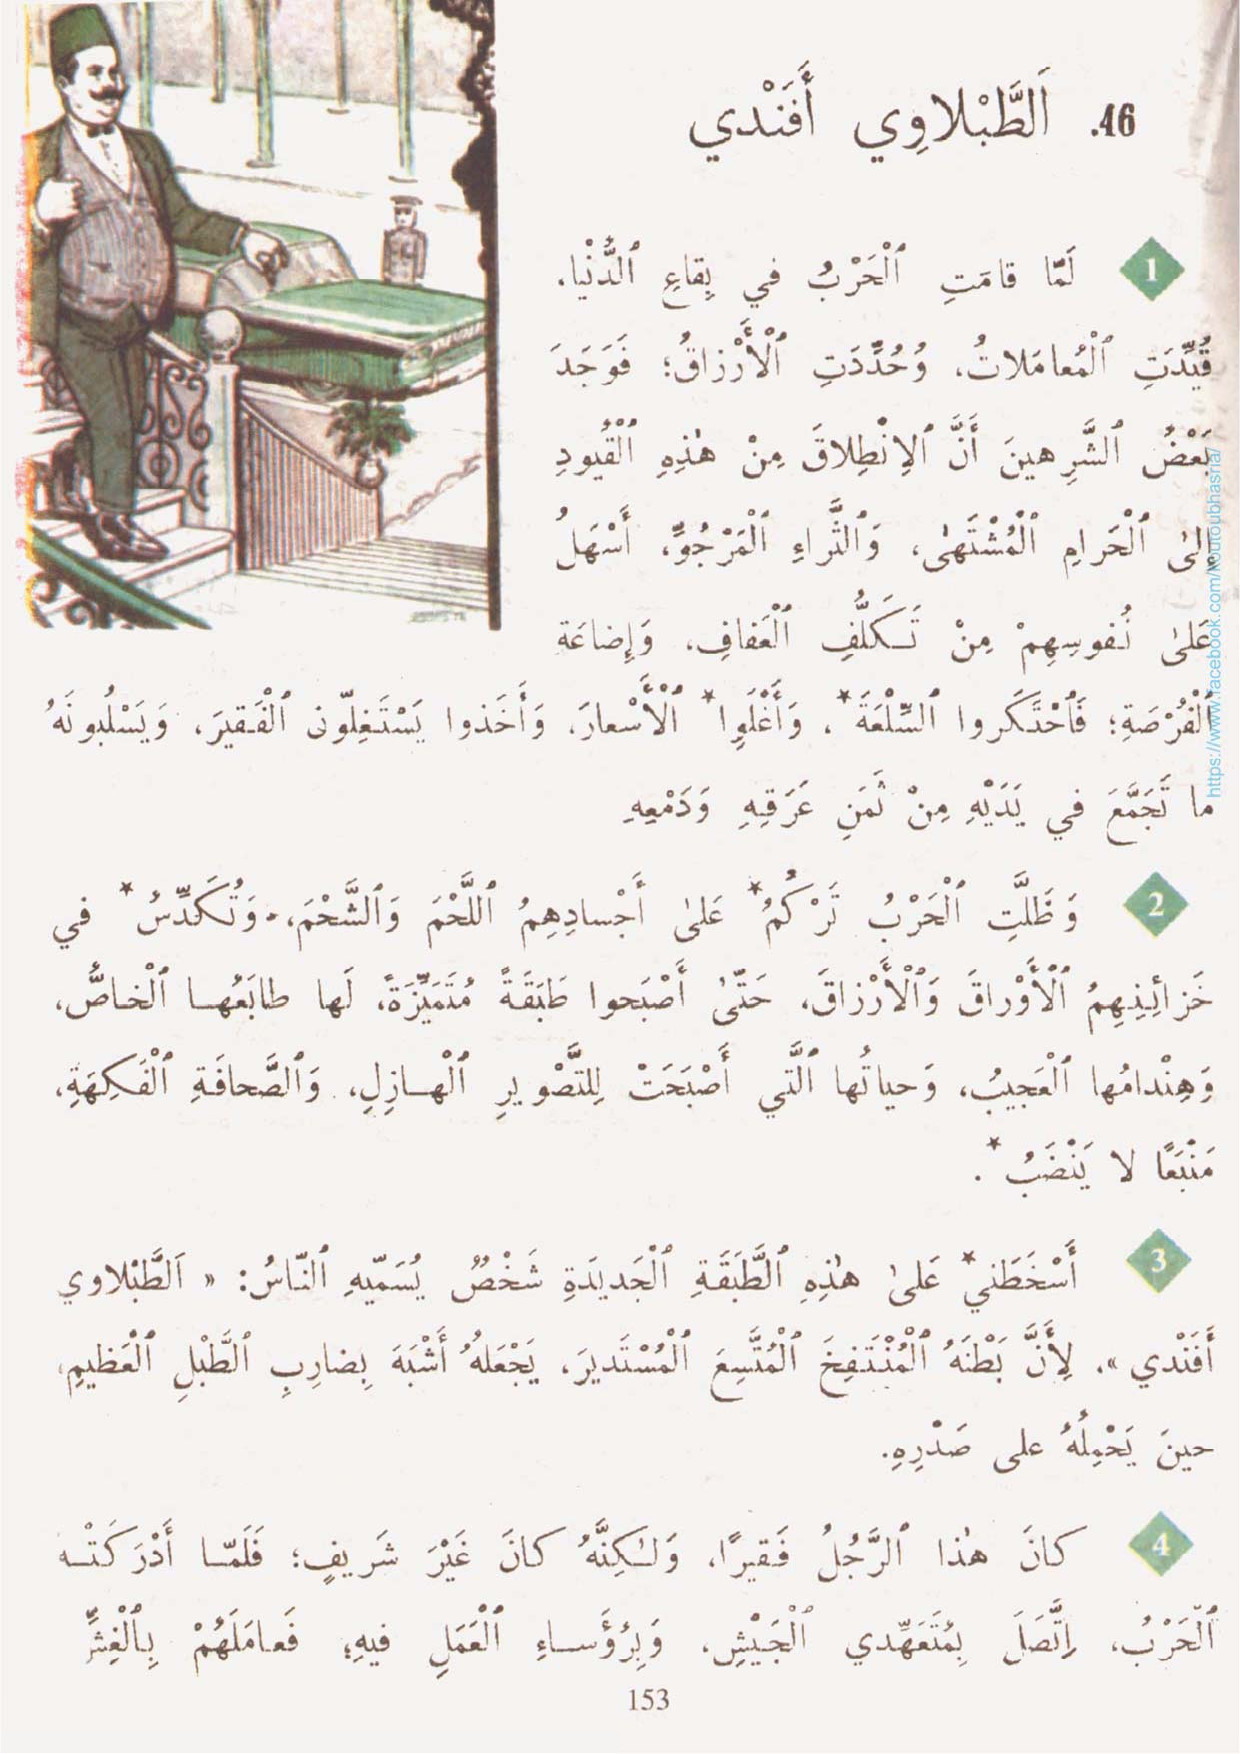 46. اَلطَّبْلاوِي أَفَنْدي
1 لَمّا قامَتِ ٱلْحَرْبُ في بِقاعِ ٱلدُّنْيا.
قُيِّدَتِ ٱلْمُعامَلاتُ، وَحُدِّدَتِ ٱلْأَرْزاقُ؛ فَوَجَدَ
بَعْضُ ٱلشَّرِهينَ أَنَّ ٱلِانْطِلاقَ مِنْ هٰذِهِ ٱلْقُيودِ
إِلىٰ ٱلْحَرامِ ٱلْمُشْتَهىٰ، وَٱلثَّراءِ ٱلْمَرْجُوِّ، أَسْهَلُ
عَلىٰ نُفوسِهِمْ مِنْ تَكَلُّفِ ٱلْعَفافِ، وَإِضاعَةِ
ٱلْفُرْصَةِ؛ فَٱحْتَكَروا ٱلسِّلْعَةَ*، وَأَغْلَوا* ٱلْأَسْعارَ، وَأَخَذوا يَسْتَغِلّون ٱلْفَقيرَ، وَيَسْلُبونَهُ
ما تَجَمَّعَ في يَدَيْهِ مِنْ ثَمَنِ عَرَقِهِ وَدَمْعِهِ
2 وَظَلَّتِ ٱلْحَرْبُ تَرْكُمُ* عَلىٰ أَجْسادِهِمُ ٱللَّحْمَ وَٱلشَّحْمَ، وَتُكَدِّسُ* في
خَزائِنِهِمُ ٱلْأَوْراقَ وَٱلْأَرْزاقَ، حَتّىٰ أَصْبَحوا طَبَقَةً مُتَمَيِّزَةً، لَها طابَعُها ٱلْخاصُّ،
وَهِنْدامُها ٱلْعَجيبُ، وَحياتُها ٱلَّتي أَصْبَحَتْ لِلتَّصْويرِ ٱلْهازِلِ، وَٱلصَّحافَةِ ٱلْفَكِهَةِ،
مَنْبَعًا لا يَنْضَبُ*.
3 أَسْخَطَني* عَلىٰ هٰذِهِ ٱلطَّبَقَةِ ٱلْجَديدَةِ شَخْصٌ يُسَمّيهِ ٱلنّاسُ: « اَلطَّبْلاوي
أَفَنْدي ». لِأَنَّ بَطْنَهُ ٱلْمُنْتَفِخَ ٱلْمُتَّسِعَ ٱلْمُسْتَديرَ، يَجْعَلُهُ أَشْبَهَ بِضارِبِ ٱلطَّبْلِ ٱلْعَظيمِ،
حينَ يَحْمِلُهُ على صَدْرِهِ.
4 كانَ هٰذا ٱلرَّجُلُ فَقيرًا، وَلٰكِنَّهُ كانَ غَيْرَ شَريفٍ؛ فَلَمّا أَدْرَكَتْهُ
ٱلْحَرْبُ، اِتَّصَلَ بِمُتَعَهِّدي ٱلْجَيْشِ، وَبِرُؤَساءِ ٱلْعَمَلِ فيهِ؛ فَعامَلَهُمْ بِٱلْغِشِّ
153
https://www.facebook.com/koutoubhasria/